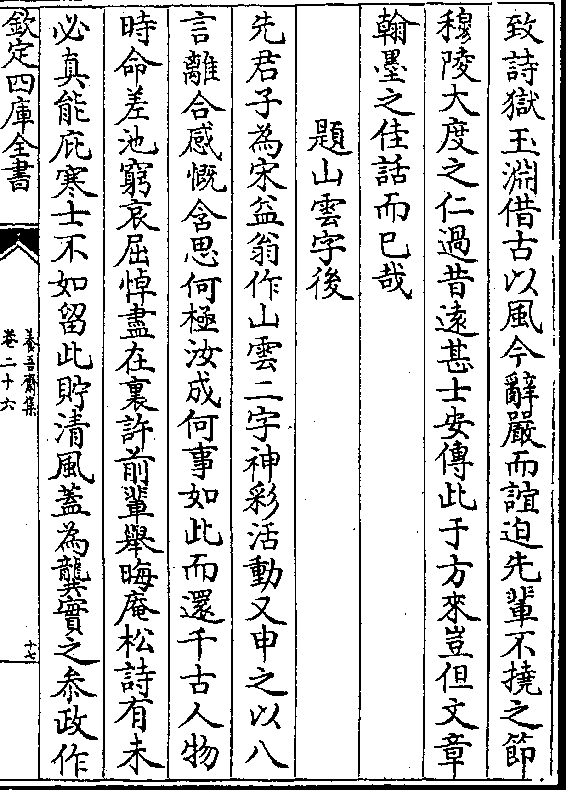 致詩獄玉淵借古以風今辭嚴而誼迫先輩不撓之節
穆陵大度之仁過昔逺甚士安傳此于方來豈但文章
翰墨之佳話而已哉
題山雲字後
先君子為宋益翁作山雲二字神彩活動又申之以八
言離合感慨含思何極汝成何事如此而還千古人物
時命差池窮哀屈悼盡在裏許前輩舉晦庵松詩有未
必真能庇寒士不如留此貯清風蓋為龔實之參政作
欽定四庫全書
養吾齋集
卷二十六
十七